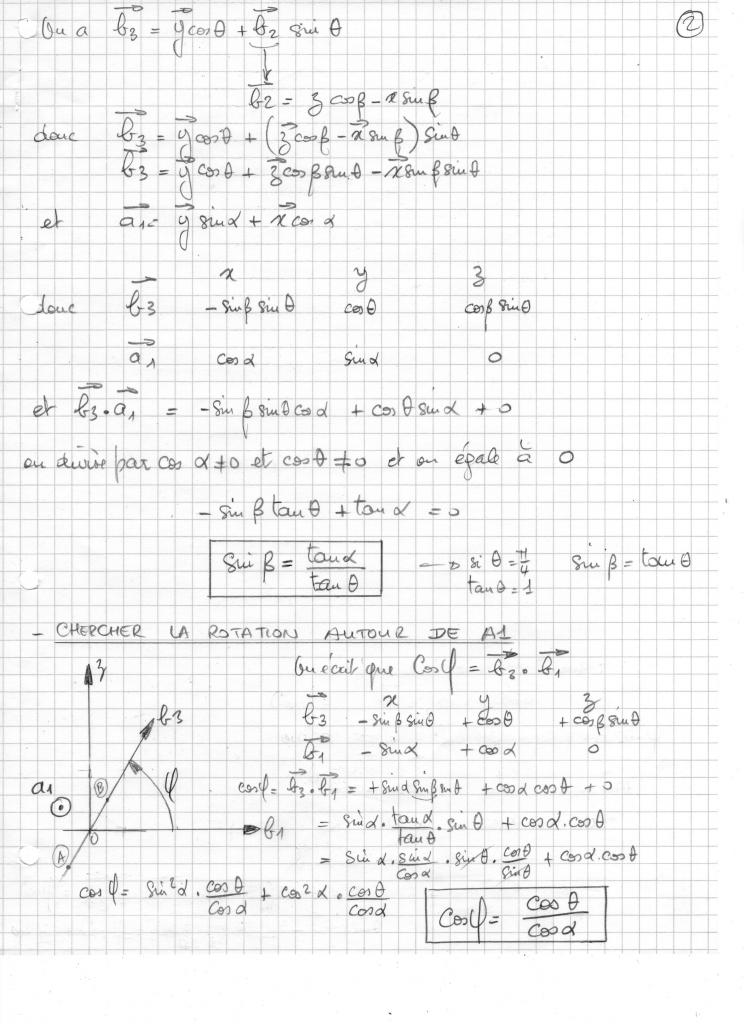 On a b3 = y cosθ + b2 sin θ
②
b2 = z cosβ - x sinβ
donc b3 = y cosθ + (z cosβ - x sinβ) sinθ
b3 = y cosθ + z cosβ sinθ - x sinβ sinθ
et a1 = y sinα + x cos α
x y z
donc b3 - sinβ sinθ cosθ cosβ sinθ
a1 cosα sinα 0
et b3 . a1 = - sin β sinθ cosα + cosθ sinα + 0
on divise par cos α ≠ 0 et cosθ ≠ 0 et on égale à 0
- sin β tan θ + tan α = 0
sin β = tanα / tan θ → si θ = π/4 sin β = tan θ
tan θ = 1
- CHERCHER LA ROTATION AUTOUR DE A1
On écrit que Cosφ = b3 . b1
z
x y z
b3 b3 - sinβ sinθ + cosθ + cosβ sinθ
b1 - sinα + cosα 0
a1 B φ cosφ = b3 . b1 = + sinα sinβ sinθ + cosα cosθ + 0
= sinα . tanα / tanθ . sin θ + cosα . cosθ
0 b1
A = sin α . sinα / cosα . sinθ . cosθ / sinθ + cosα . cosθ
cos φ = sin²α . cos θ / cosα + cos²α . cosθ / cosα
Cosφ = cos θ / cosα